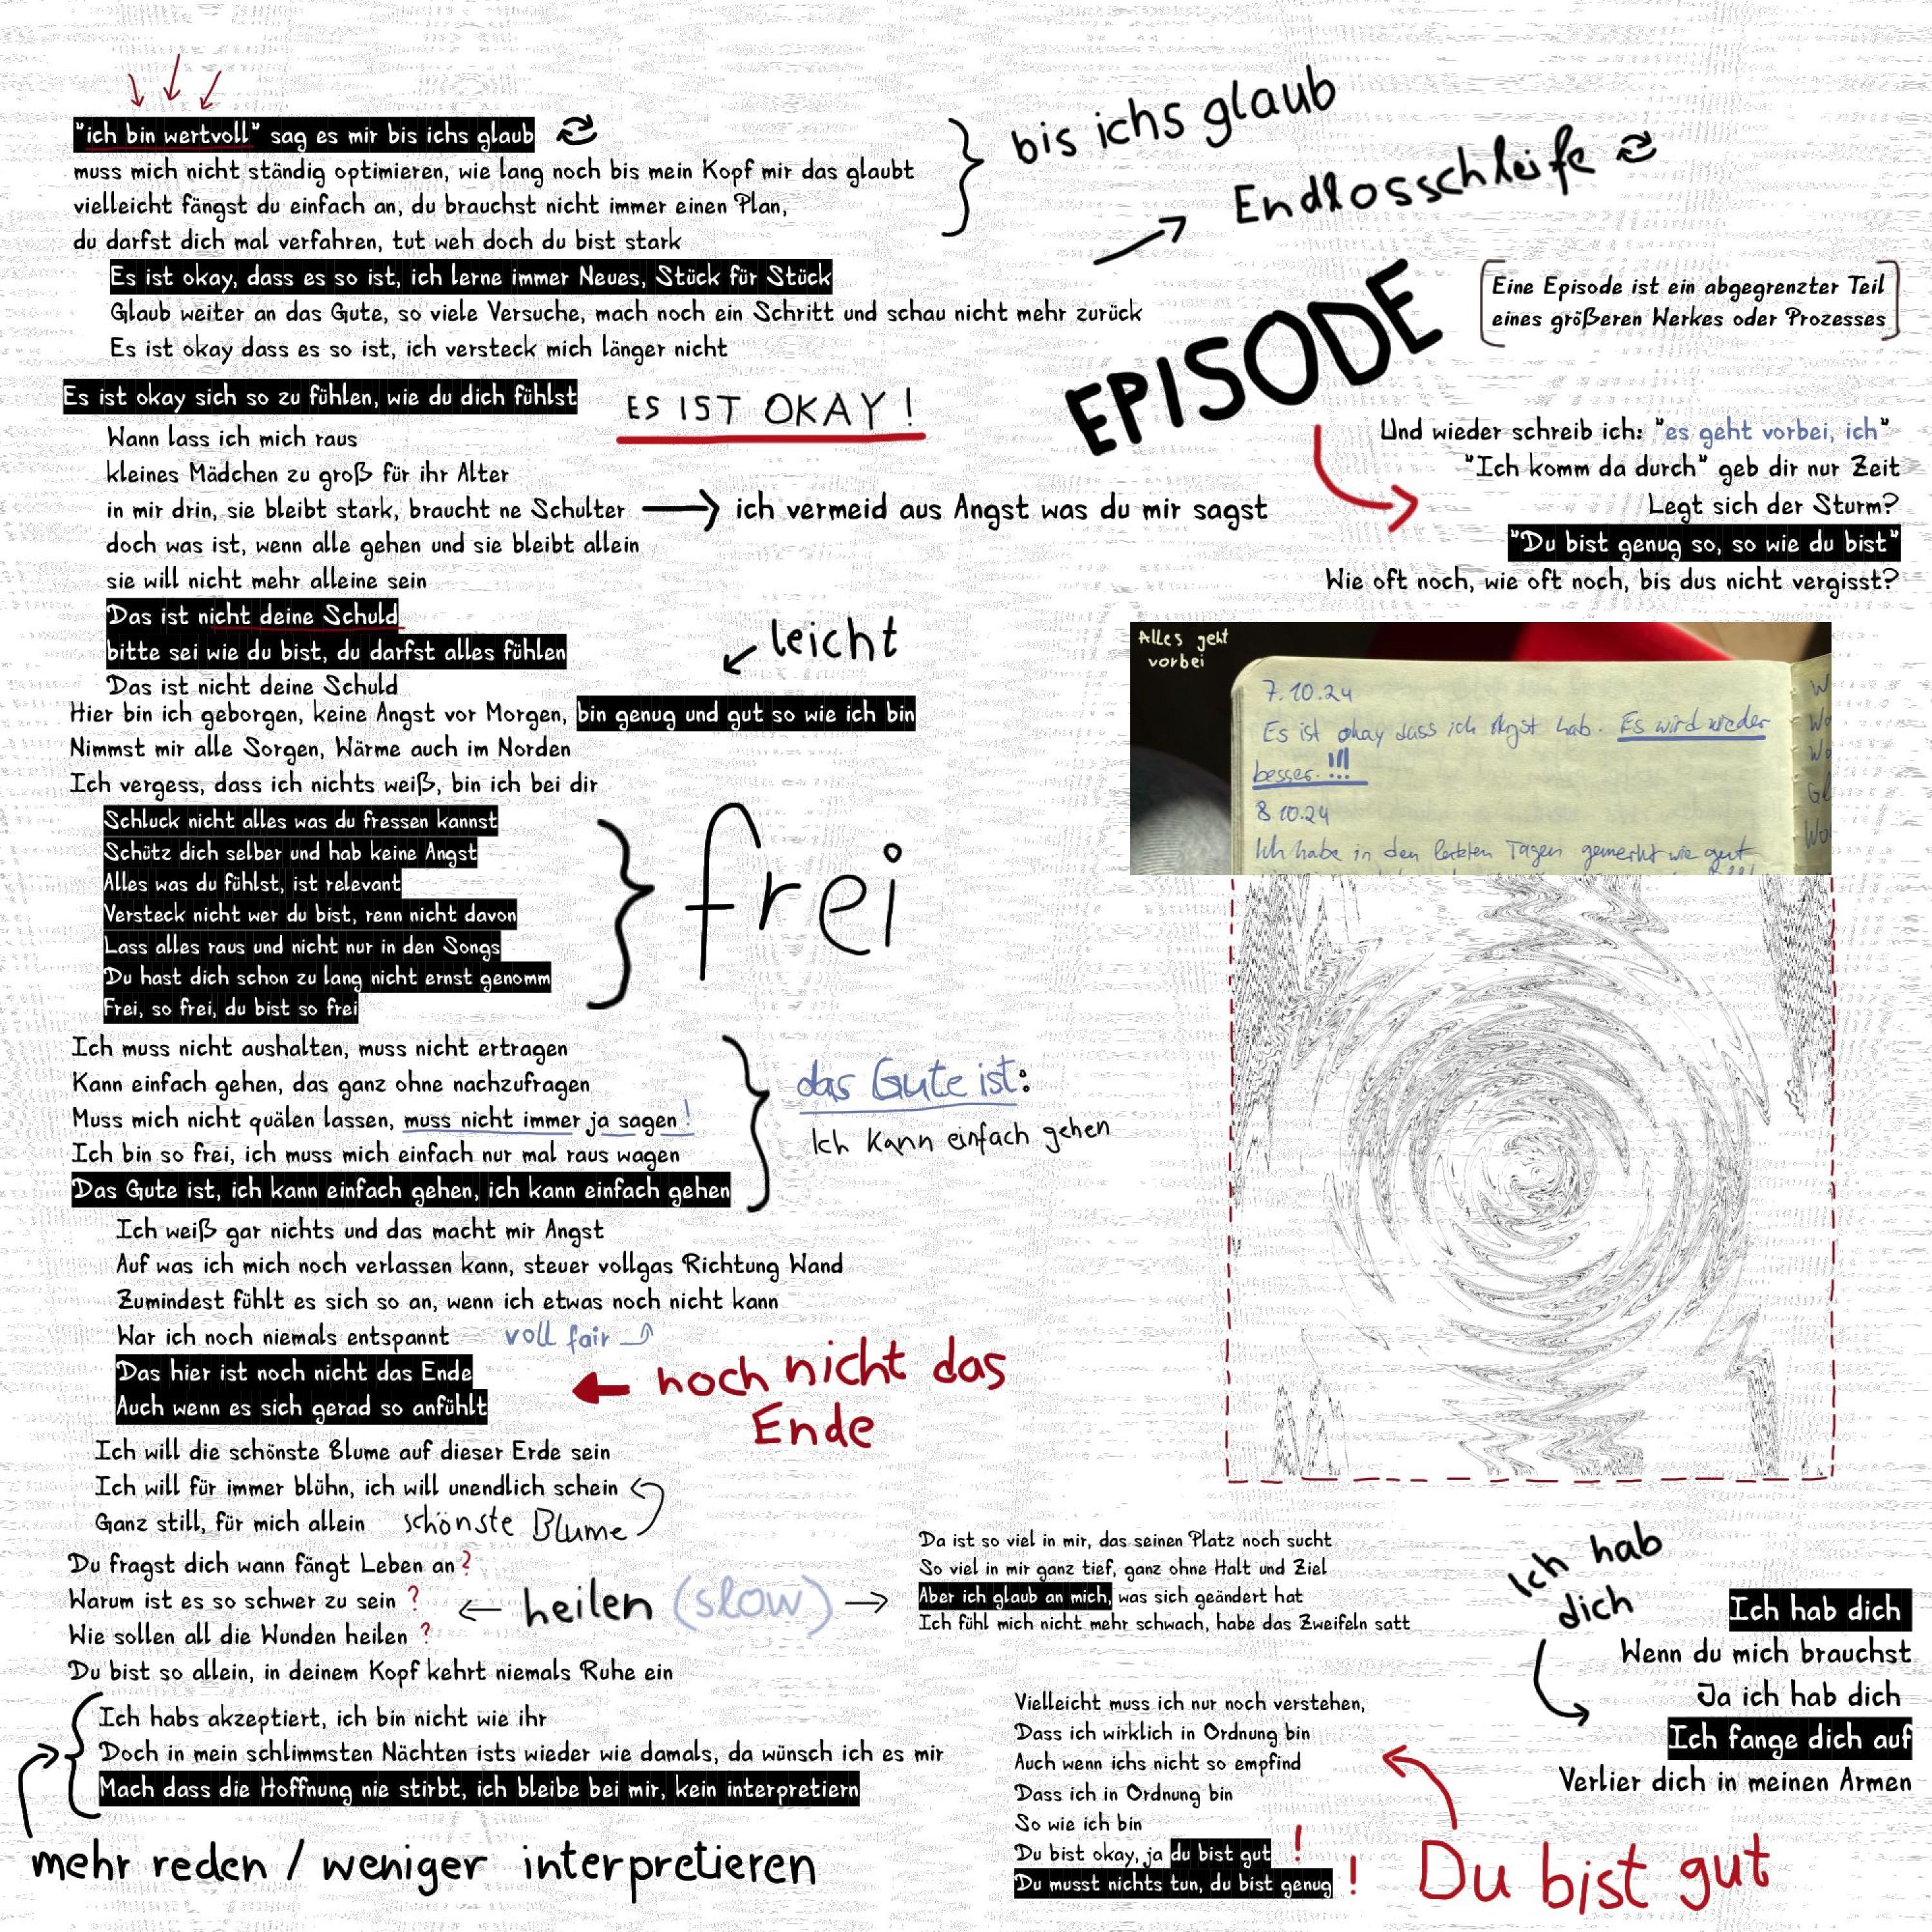 "ich bin wertvoll" sag es mir bis ichs glaub
muss mich nicht ständig optimieren, wie lang noch bis mein Kopf mir das glaubt
vielleicht fängst du einfach an, du brauchst nicht immer einen Plan,
du darfst dich mal verfahren, tut weh doch du bist stark
bis ichs glaub
Endlosschleife
Es ist okay, dass es so ist, ich lerne immer Neues, Stück für Stück
Glaub weiter an das Gute, so viele Versuche, mach noch ein Schritt und schau nicht mehr zurück
Es ist okay dass es so ist, ich versteck mich länger nicht
EPISODE
Eine Episode ist ein abgegrenzter Teil
eines größeren Werkes oder Prozesses
Es ist okay sich so zu fühlen, wie du dich fühlst
ES IST OKAY!
Wann lass ich mich raus
kleines Mädchen zu groß für ihr Alter
in mir drin, sie bleibt stark, braucht ne Schulter → ich vermeid aus Angst was du mir sagst
doch was ist, wenn alle gehen und sie bleibt allein
sie will nicht mehr alleine sein
Das ist nicht deine Schuld
bitte sei wie du bist, du darfst alles fühlen
Das ist nicht deine Schuld
Und wieder schreib ich: "es geht vorbei, ich"
"Ich komm da durch" geb dir nur Zeit
Legt sich der Sturm?
"Du bist genug so, so wie du bist"
Wie oft noch, wie oft noch, bis dus nicht vergisst?
leicht
Hier bin ich geborgen, keine Angst vor Morgen, bin genug und gut so wie ich bin
Nimmst mir alle Sorgen, Wärme auch im Norden
Ich vergess, dass ich nichts weiß, bin ich bei dir
Alles geht
vorbei
7.10.24
Es ist okay dass ich Angst hab. Es wird wieder
besser.!!!
8.10.24
Ich habe in den letzten Tagen gemerkt wie gut
Schluck nicht alles was du fressen kannst
Schütz dich selber und hab keine Angst
Alles was du fühlst, ist relevant
Versteck nicht wer du bist, renn nicht davon
Lass alles raus und nicht nur in den Songs
Du hast dich schon zu lang nicht ernst genomm
Frei, so frei, du bist so frei
frei
Ich muss nicht aushalten, muss nicht ertragen
Kann einfach gehen, das ganz ohne nachzufragen
Muss mich nicht quälen lassen, muss nicht immer ja sagen!
Ich bin so frei, ich muss mich einfach nur mal raus wagen
Das Gute ist, ich kann einfach gehen, ich kann einfach gehen
das Gute ist:
Ich kann einfach gehen
Ich weiß gar nichts und das macht mir Angst
Auf was ich mich noch verlassen kann, steuer vollgas Richtung Wand
Zumindest fühlt es sich so an, wenn ich etwas noch nicht kann
War ich noch niemals entspannt
voll fair
Das hier ist noch nicht das Ende
Auch wenn es sich gerad so anfühlt
noch nicht das
Ende
Ich will die schönste Blume auf dieser Erde sein
Ich will für immer blühn, ich will unendlich schein
Ganz still, für mich allein
schönste Blume
Du fragst dich wann fängt Leben an?
Warum ist es so schwer zu sein?
Wie sollen all die Wunden heilen?
Du bist so allein, in deinem Kopf kehrt niemals Ruhe ein
← heilen (slow) →
Da ist so viel in mir, das seinen Platz noch sucht
So viel in mir ganz tief, ganz ohne Halt und Ziel
Aber ich glaub an mich, was sich geändert hat
Ich fühl mich nicht mehr schwach, habe das Zweifeln satt
Ich habs akzeptiert, ich bin nicht wie ihr
Doch in mein schlimmsten Nächten ists wieder wie damals, da wünsch ich es mir
Mach dass die Hoffnung nie stirbt, ich bleibe bei mir, kein interpretiern
mehr reden / weniger interpretieren
Vielleicht muss ich nur noch verstehen,
Dass ich wirklich in Ordnung bin
Auch wenn ichs nicht so empfind
Dass ich in Ordnung bin
So wie ich bin
Du bist okay, ja du bist gut!
Du musst nichts tun, du bist genug!
Du bist gut
Ich hab
dich
Ich hab dich
Wenn du mich brauchst
Ja ich hab dich
Ich fange dich auf
Verlier dich in meinen Armen